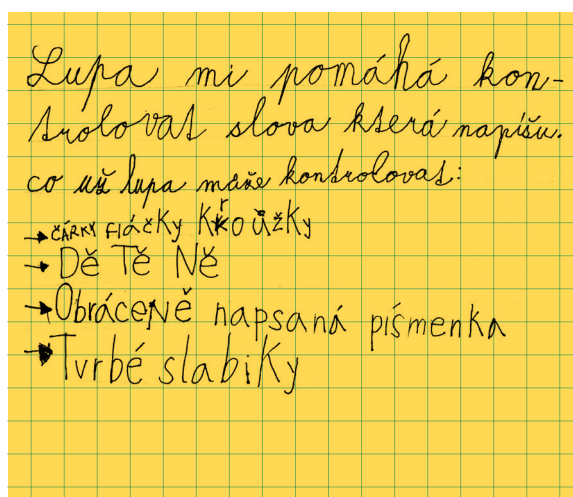 Lupa mi pomáhá kon-
trolovat slova která napíšu.
co už lupa může kontrolovat:
→ ČÁRKY FIáčKy KroůžKy
→ Dě Tě Ně
→ ObráceNě napsaná písmenka
→ Tvrbé slabiKy